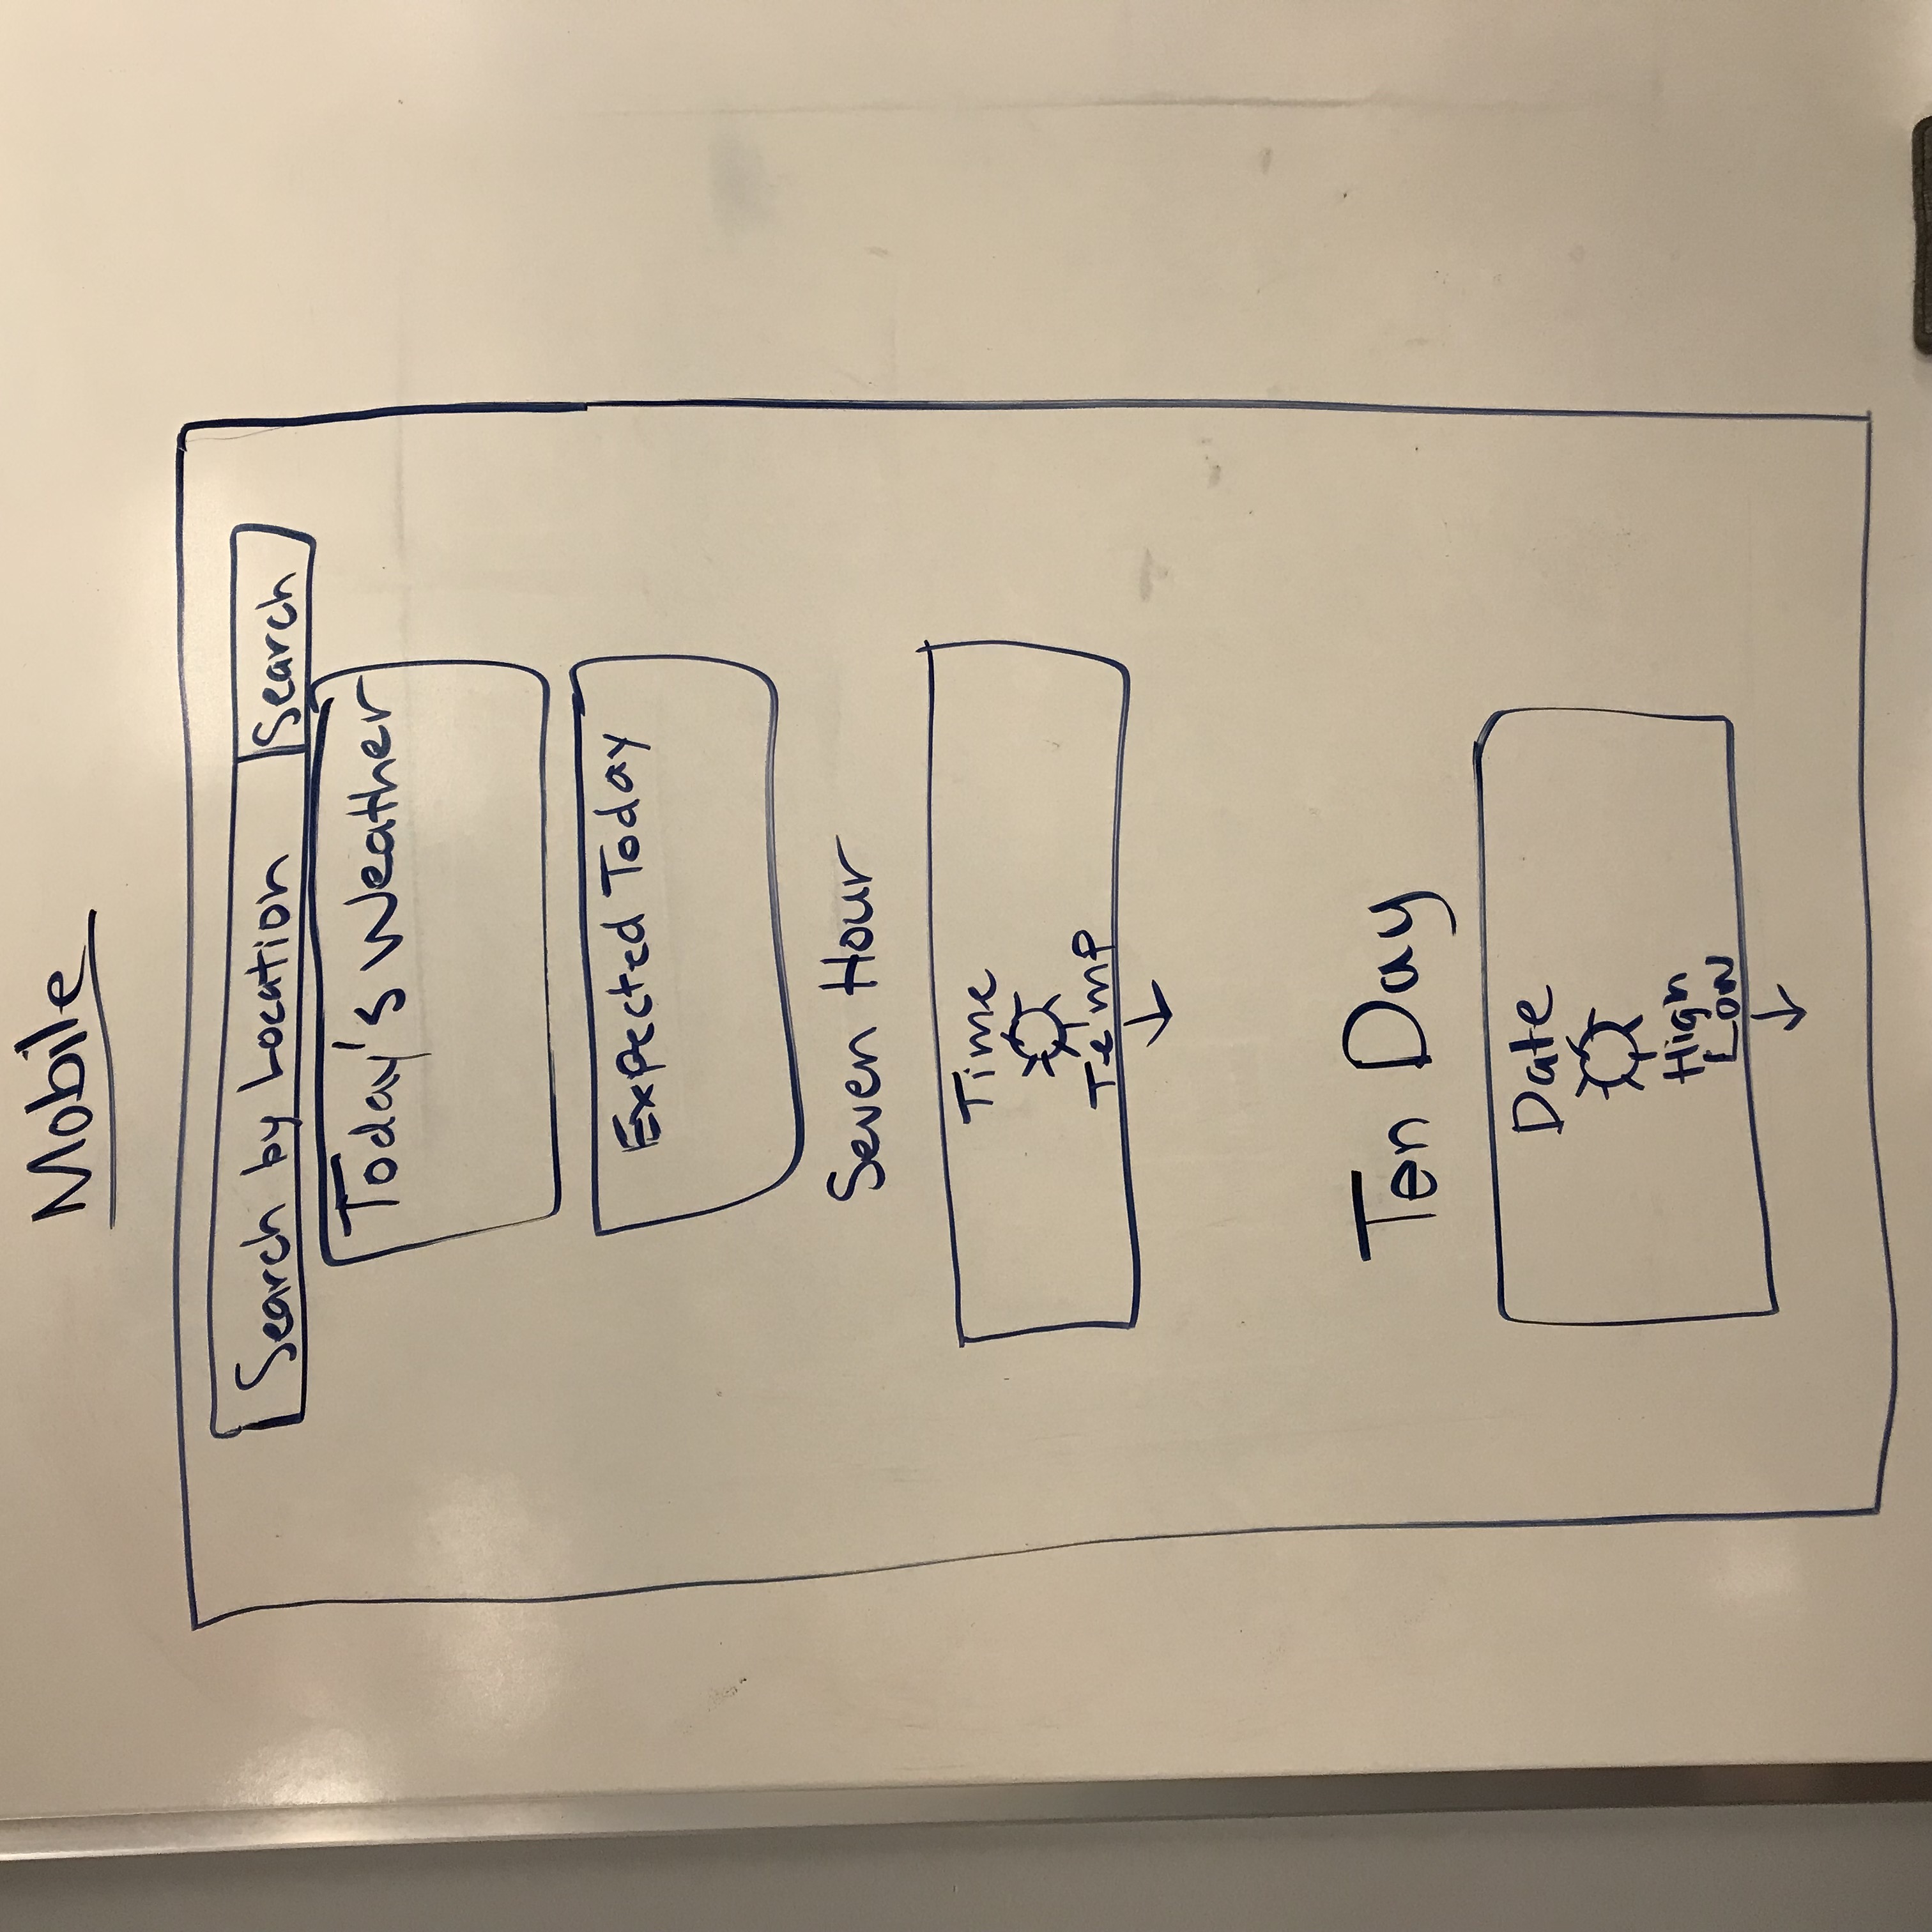 Mobile
Search by Location Search
Today's Weather
Expected Today
Seven Hour
Time
Temp
Ten Day
Date
High
Low